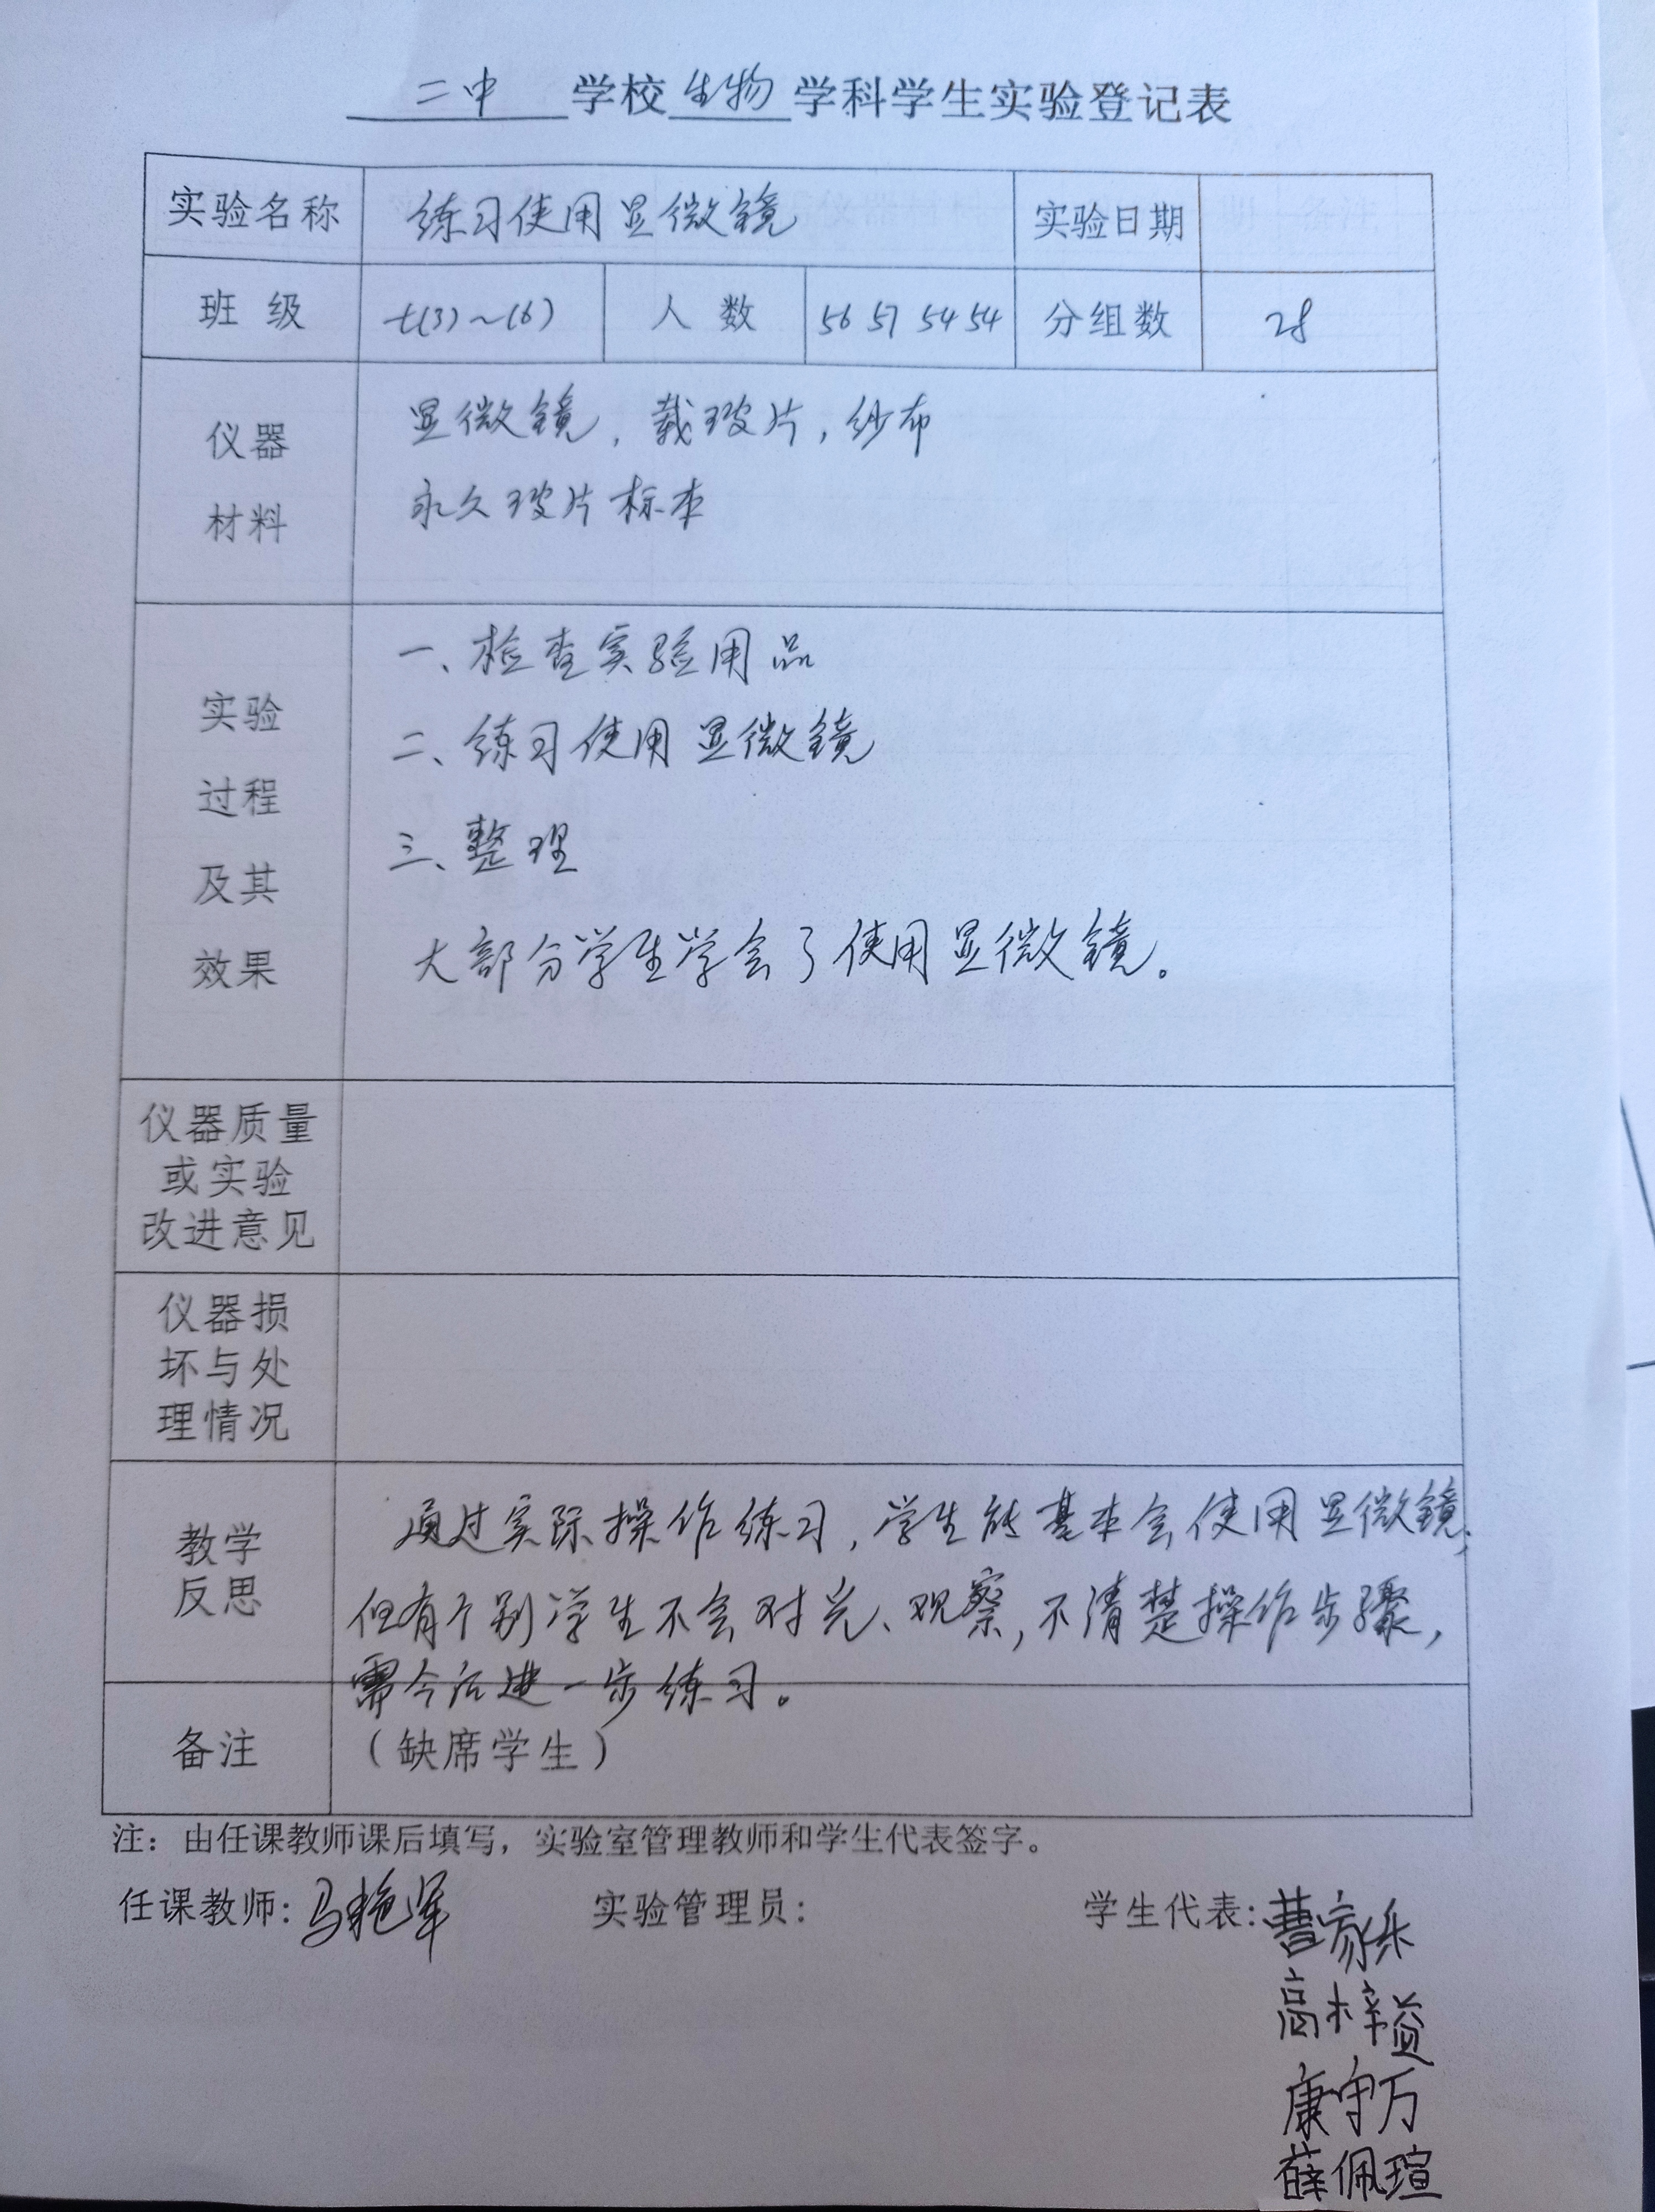 二中 学校 生物 学科学生实验登记表
实验名称 练习使用显微镜 实验日期
班 级 七(3)~(6) 人 数 56 57 54 54 分组数 28
仪器
材料
显微镜，载玻片，纱布
永久玻片标本
实验
过程
及其
效果
一、检查实验用品
二、练习使用显微镜
三、整理
大部分学生学会了使用显微镜。
仪器质量
或实验
改进意见
仪器损
坏与处
理情况
教学
反思
通过实际操作练习，学生能基本会使用显微镜；
但有个别学生不会对光、观察，不清楚操作步骤，
需今后进一步练习。
备注 （缺席学生）
注：由任课教师课后填写，实验室管理教师和学生代表签字。
任课教师：马艳军 实验管理员： 学生代表：曹家乐
高梓益
康守万
薛佩瑄